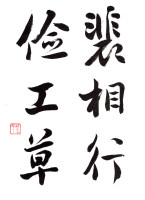 裴相行
俭工草